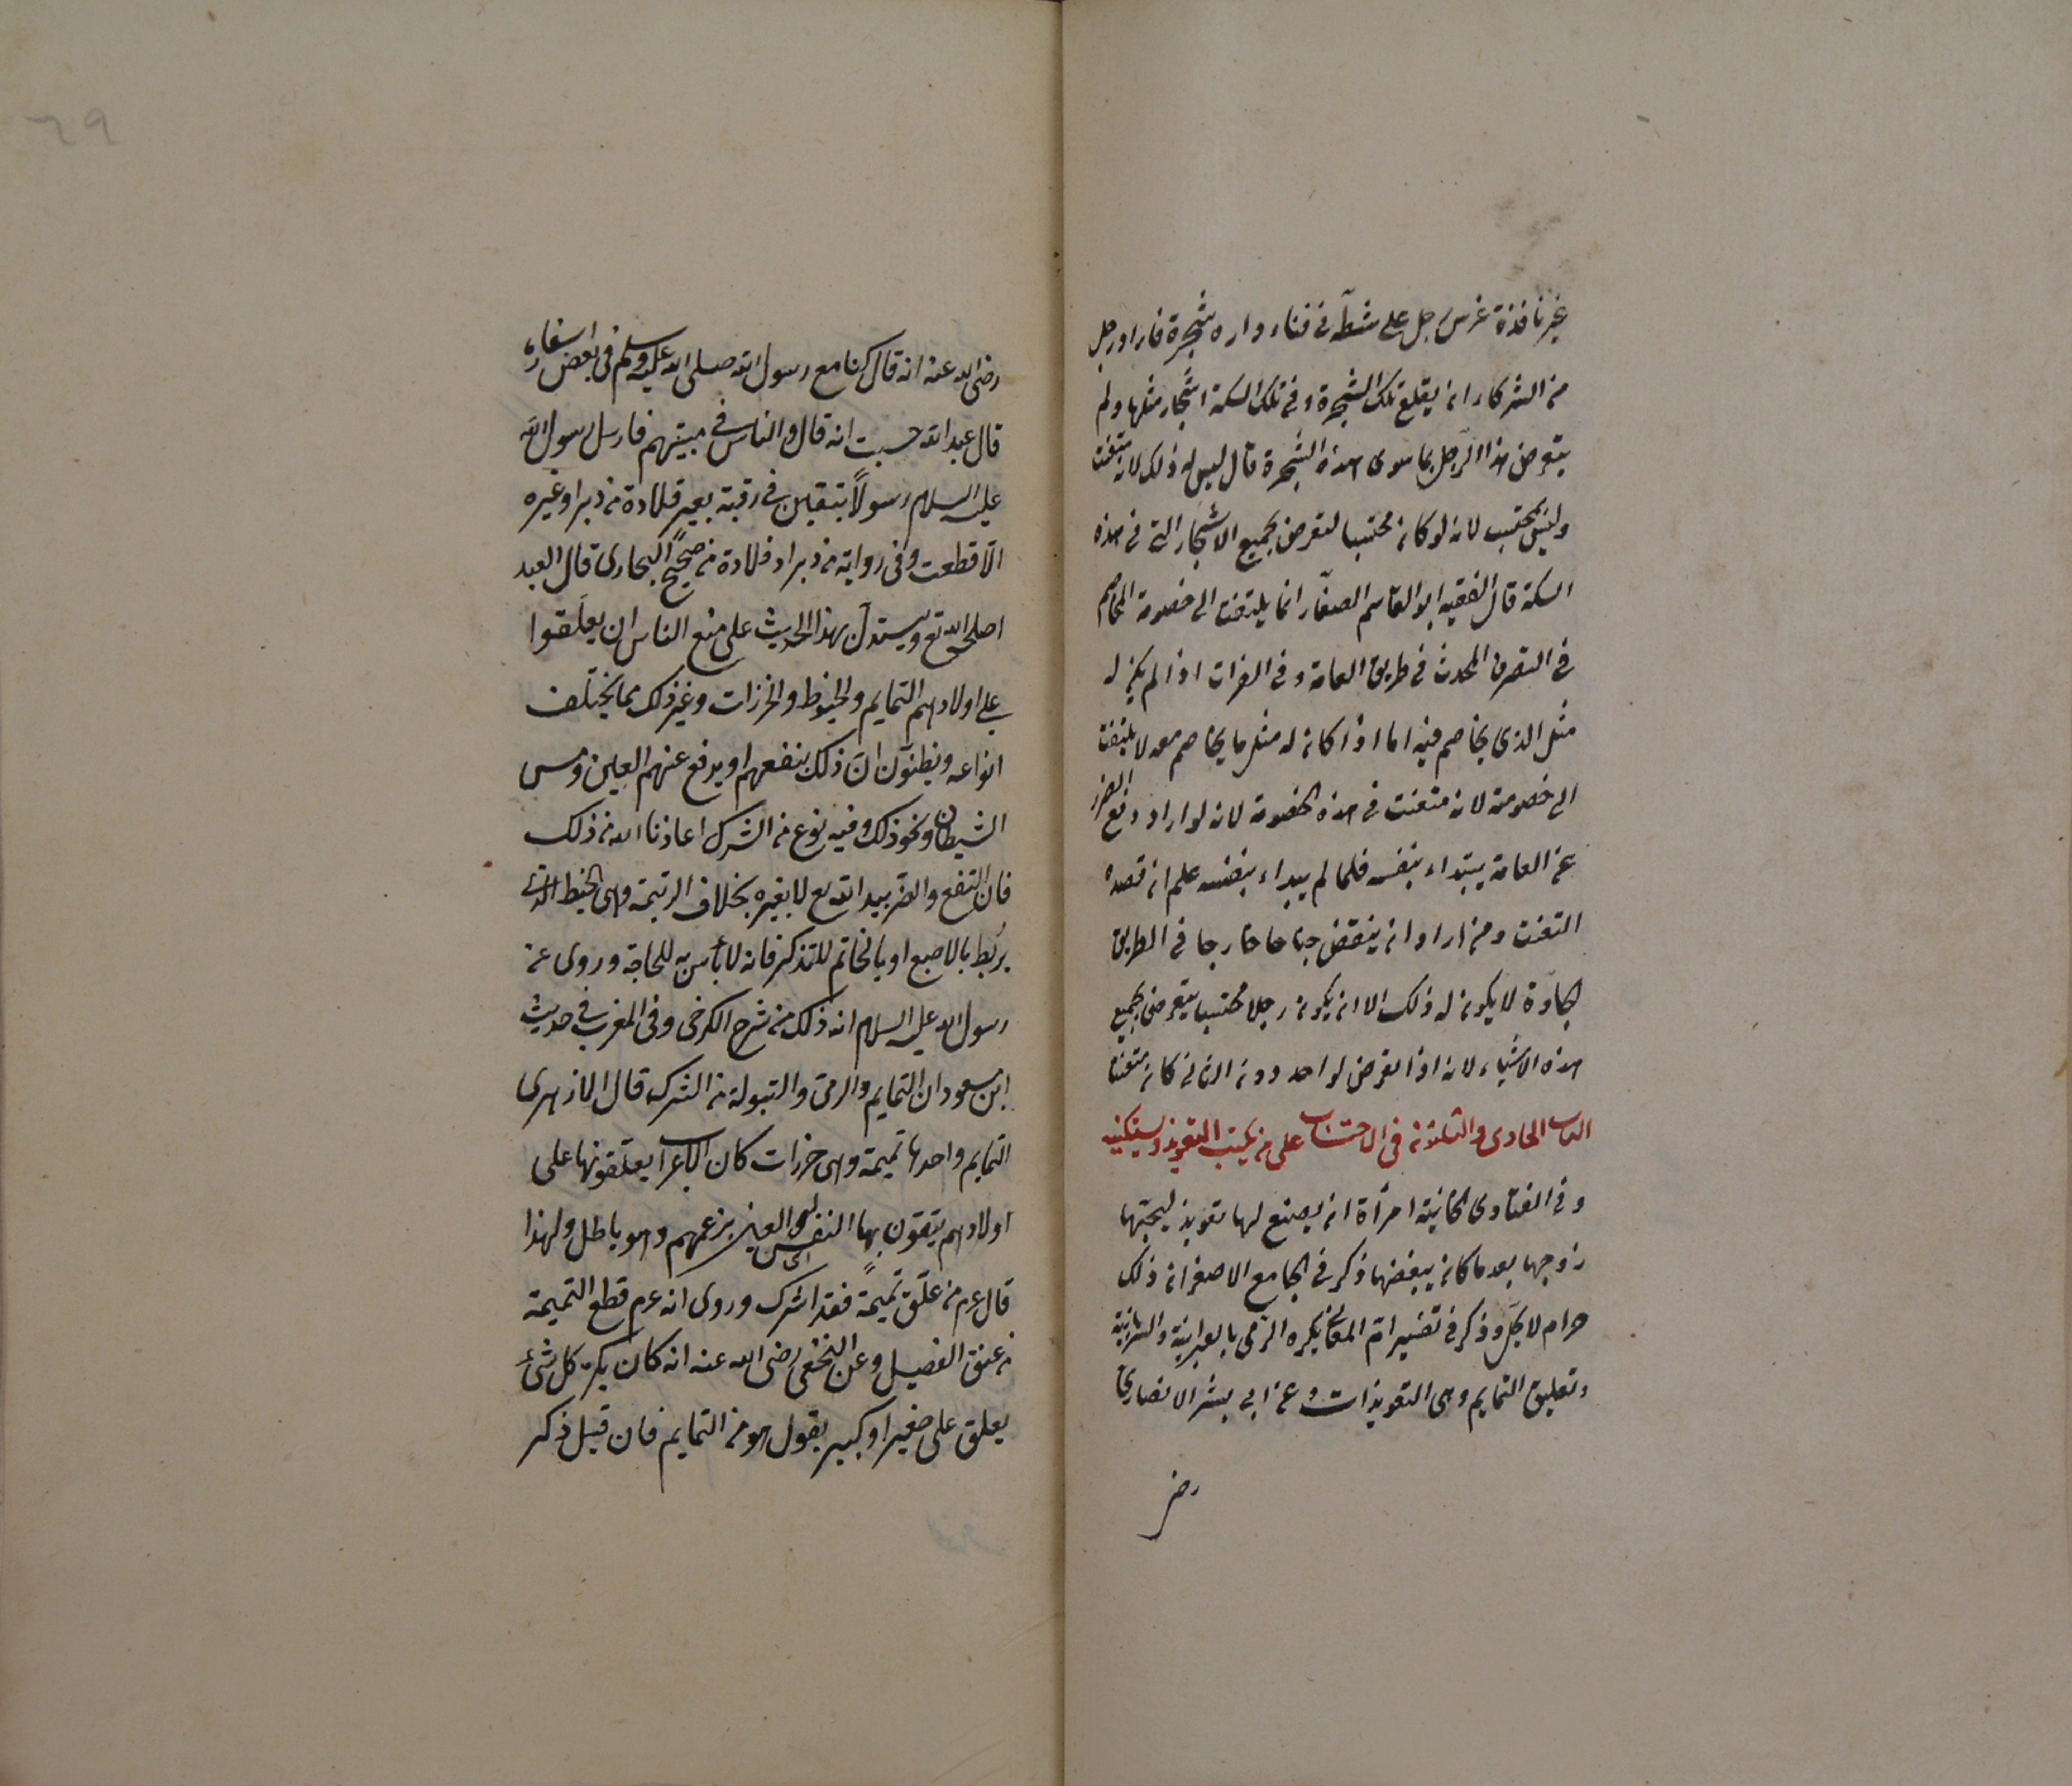 غير نافذة غرس رجل على شطه فى فناء داره شجرة فاراد رجل
من الشركاء ان يقلع تلك الشجرة وفى تلك السكة اشجار مثلها ولم
يتعرض هذا الرجل بما سوى هذه الشجرة قال ليس له ذلك لانه متعنت
وليس بمحتسب لانه لو كان محتسبا لتعرض بجميع الاشجار التى فى هذه
السكة قال الفقيه ابو القاسم الصفّار انما يلتفت الى خصومة المخاصم
فى التصرف المحدث فى طريق العامة وفى الفرات اذا لم يكن له
مثل الذى يخاصم فيه اما اذا كان له مثل ما يخاصم معه لا يلتفت
الى خصومته لانه متعنت فى هذه الخصومة لانه لو اراد دفع الضرر
عن العامة يبتداء بنفسه فلما لم يبداء بنفسه علم ان قصده
التعنت ومن اراد ان ينقض جناحا خارجا فى الطريق
الجادّة لا يكون له ذلك الا ان يكون رجلا محتسبا يتعرض بجميع
هذه الاشياء لانه اذا تعرض لواحد دون الثانى كان متعنتا
الباب الحادى والثلثون فى الاحتساب على من يكتب التعويذ ويستكتبه
وفى الفتاوى الخانية امرأة ان يصنع لها تعويذ ليحبّها
زوجها بعد ما كان يبغضها ذكر فى الجامع الاصغر ان ذلك
حرام لا يحل وذكر فى تفسير ام المعانى يكره الرقى بالعبرانية والسريانية
وتعليق التمايم وهى التعويذات وعن ابى بشر الانصارى
رضى
٦٩
رضى الله عنه انه قال كنا مع رسول الله صلى الله عليه وسلم فى بعض اسفاره
قال عبد الله حسبت انه قال والناس فى مبيتهم فارسل رسول الله
عليه السلام رسولاً يتبقين فى رقبة بعير قلادة من وبر او غيره
الّا قطعت وفى رواية من وبر او قلادة من صحيح البخارى قال العبد
اصلحه الله تع ويستدلّ بهذا الحديث على منع الناس ان يعلّقوا
على اولادهم التمايم والخيوط والخرزات وغير ذلك مما يختلف
انواعه ويظنون انّ ذلك ينفعهم او يدفع عنهم العين ومس
الشيطان ونحو ذلك وفيه نوع من الشرك اعاذنا الله من ذلك
فان النفع والضّر بيد الله تع لا بغيره بخلاف الرتيمة وهى الخيط الذى
يربط بالاصبع او بالخاتم للتذكر فانه لا بأس به للحاجة وروى عن
رسول الله عليه السلام انه ذلك من شرح الكرخى وفى المغرب فى حديث
ابن مسعود ان التمايم والرقى والتبولة من الشرك قال الازهرى
التمايم واحدها تميمة وهى خرزات كان الاعراب يعلقونها على
اولادهم يتقون بها النفس اى العين بزعمهم وهو باطل ولهذا
قال عم من علّق تميمةً فقد اشرك وروى انه عم قطع التميمة
من عنق الفضيل وعن النخعى رضى الله عنه انه كان يكره كل شئ
يعلق على صغير او كبير يقول هو من التمايم فان قيل ذكر